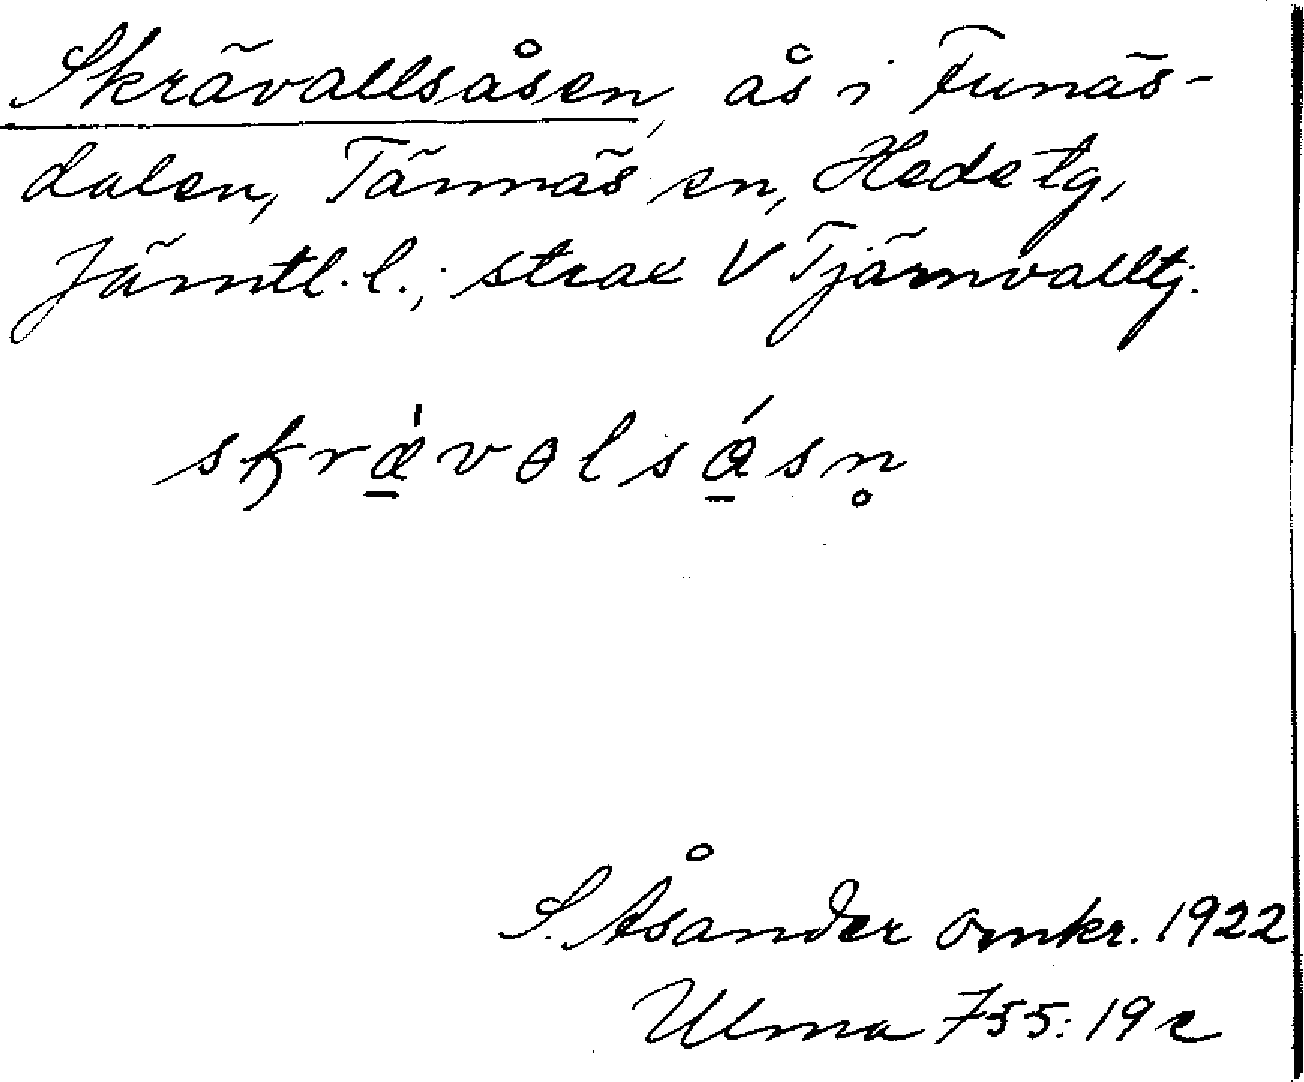 Skrävallsåsen, ås i Funäs-
dalen, Tännäs sn, Hede tg,
Jämtl. l.; strax V Tjärnvalltj.
skræ̱̀vɵlsá̱sn̥
S. Åsander omkr. 1922
Ulma 755:19 c